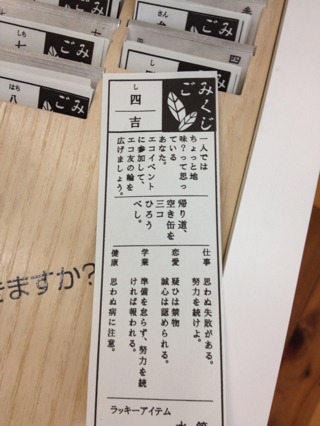 ごみくじ
し
四
吉
一人では
ちょっと地
味？って思っ
ている
あなた。
エコイベント
に参加して、
エコ友の輪を
広げましょう。
帰り道、
空き缶を
三コ
ひろう
べし。
仕事 思わぬ失敗がある。
努力を続けよ。
恋愛 疑ひは禁物
誠心は認められる。
学業 準備を怠らず、努力を続
ければ報われる。
健康 思わぬ病に注意。
ラッキーアイテム
しち
七
ごみ
はち
八
ごみ
さん
ごみ
四
ごみ
きますか？